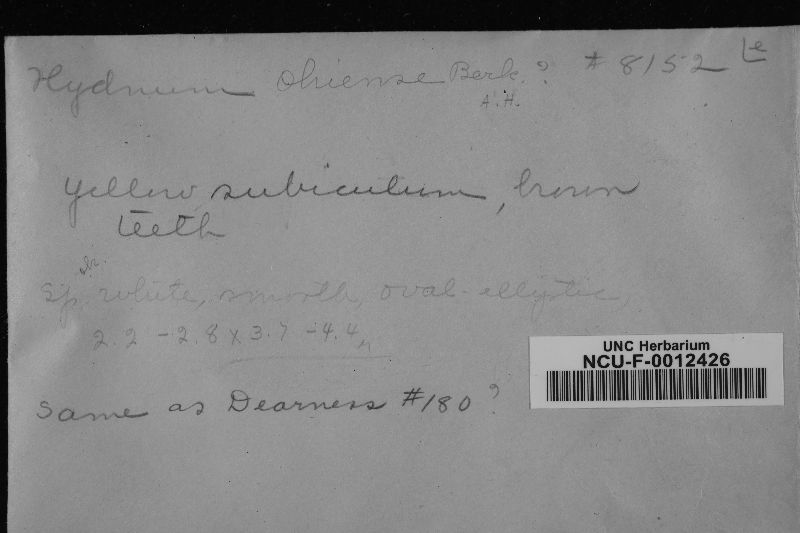 Hydnum Ohiense Berk.? # 8152 Le
A.H.
Yellow subiculum, brown
teeth
abr.
Sp. white, smooth, oval-elliptic,
2.2 - 2.8 x 3.7 - 4.4 μ
UNC Herbarium
NCU-F-0012426
Same as Dearness #180?